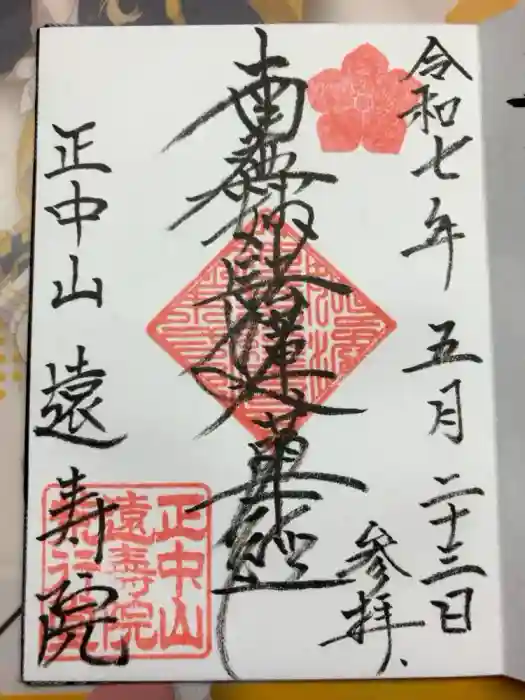 令和七年 五月二十三日
参拝
南無妙法蓮華経
正中山 遠寿院
正中山
遠寿院
荒行堂